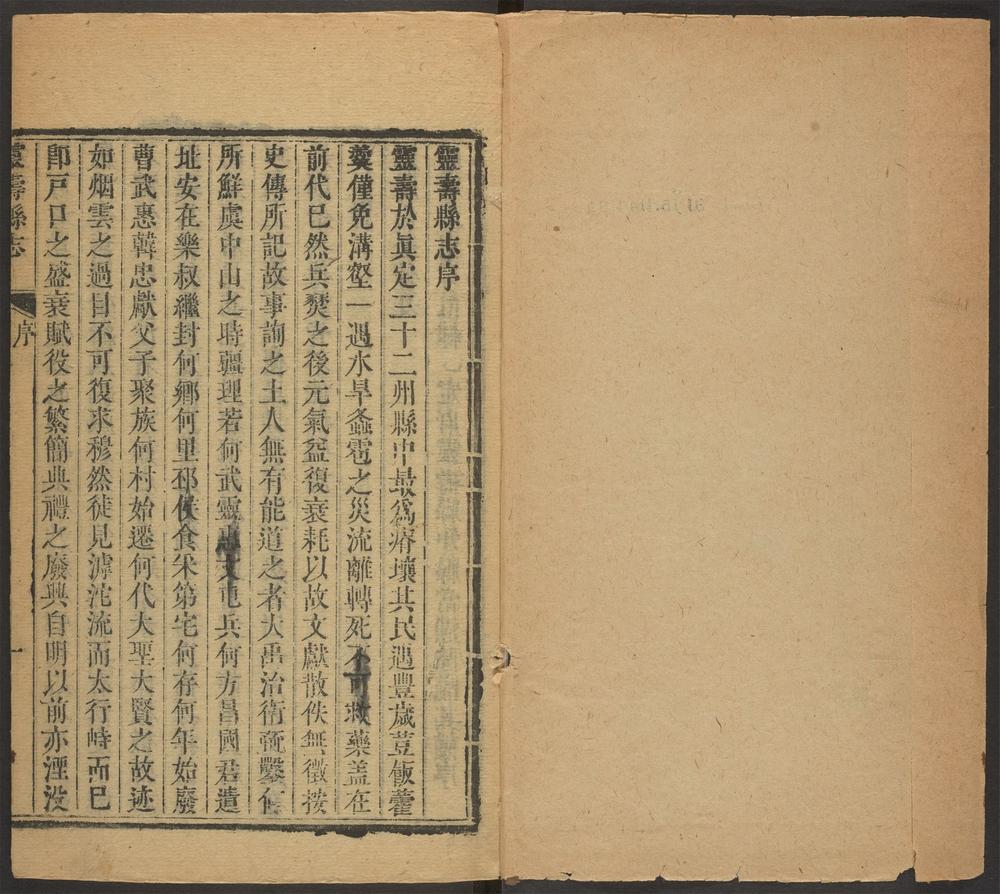 靈壽縣志序
靈壽於真定三十二州縣中最為瘠壤其民遇豐歲荳飯藿
羹僅免溝壑一遇水旱螽雹之災流離轉死不可救藥蓋在
前代已然兵燹之後元氣益復衰耗以故文獻散佚無徵按
史傳所記故事詢之土人無有能道之者大禹治衛疏鑿何
所鮮虞中山之時疆理若何武靈惠文屯兵何方昌國君遺
址安在樂叔繼封何鄉何里邳侯食采第宅何存何年始廢
曹武惠韓忠獻父子聚族何村始遷何代大聖大賢之故迹
如烟雲之過目不可復求穆然徒見滹沱流而太行峙而已
卽戸口之盛衰賦役之繁簡典禮之廢興自明以前亦湮没
靈壽縣志 序 一